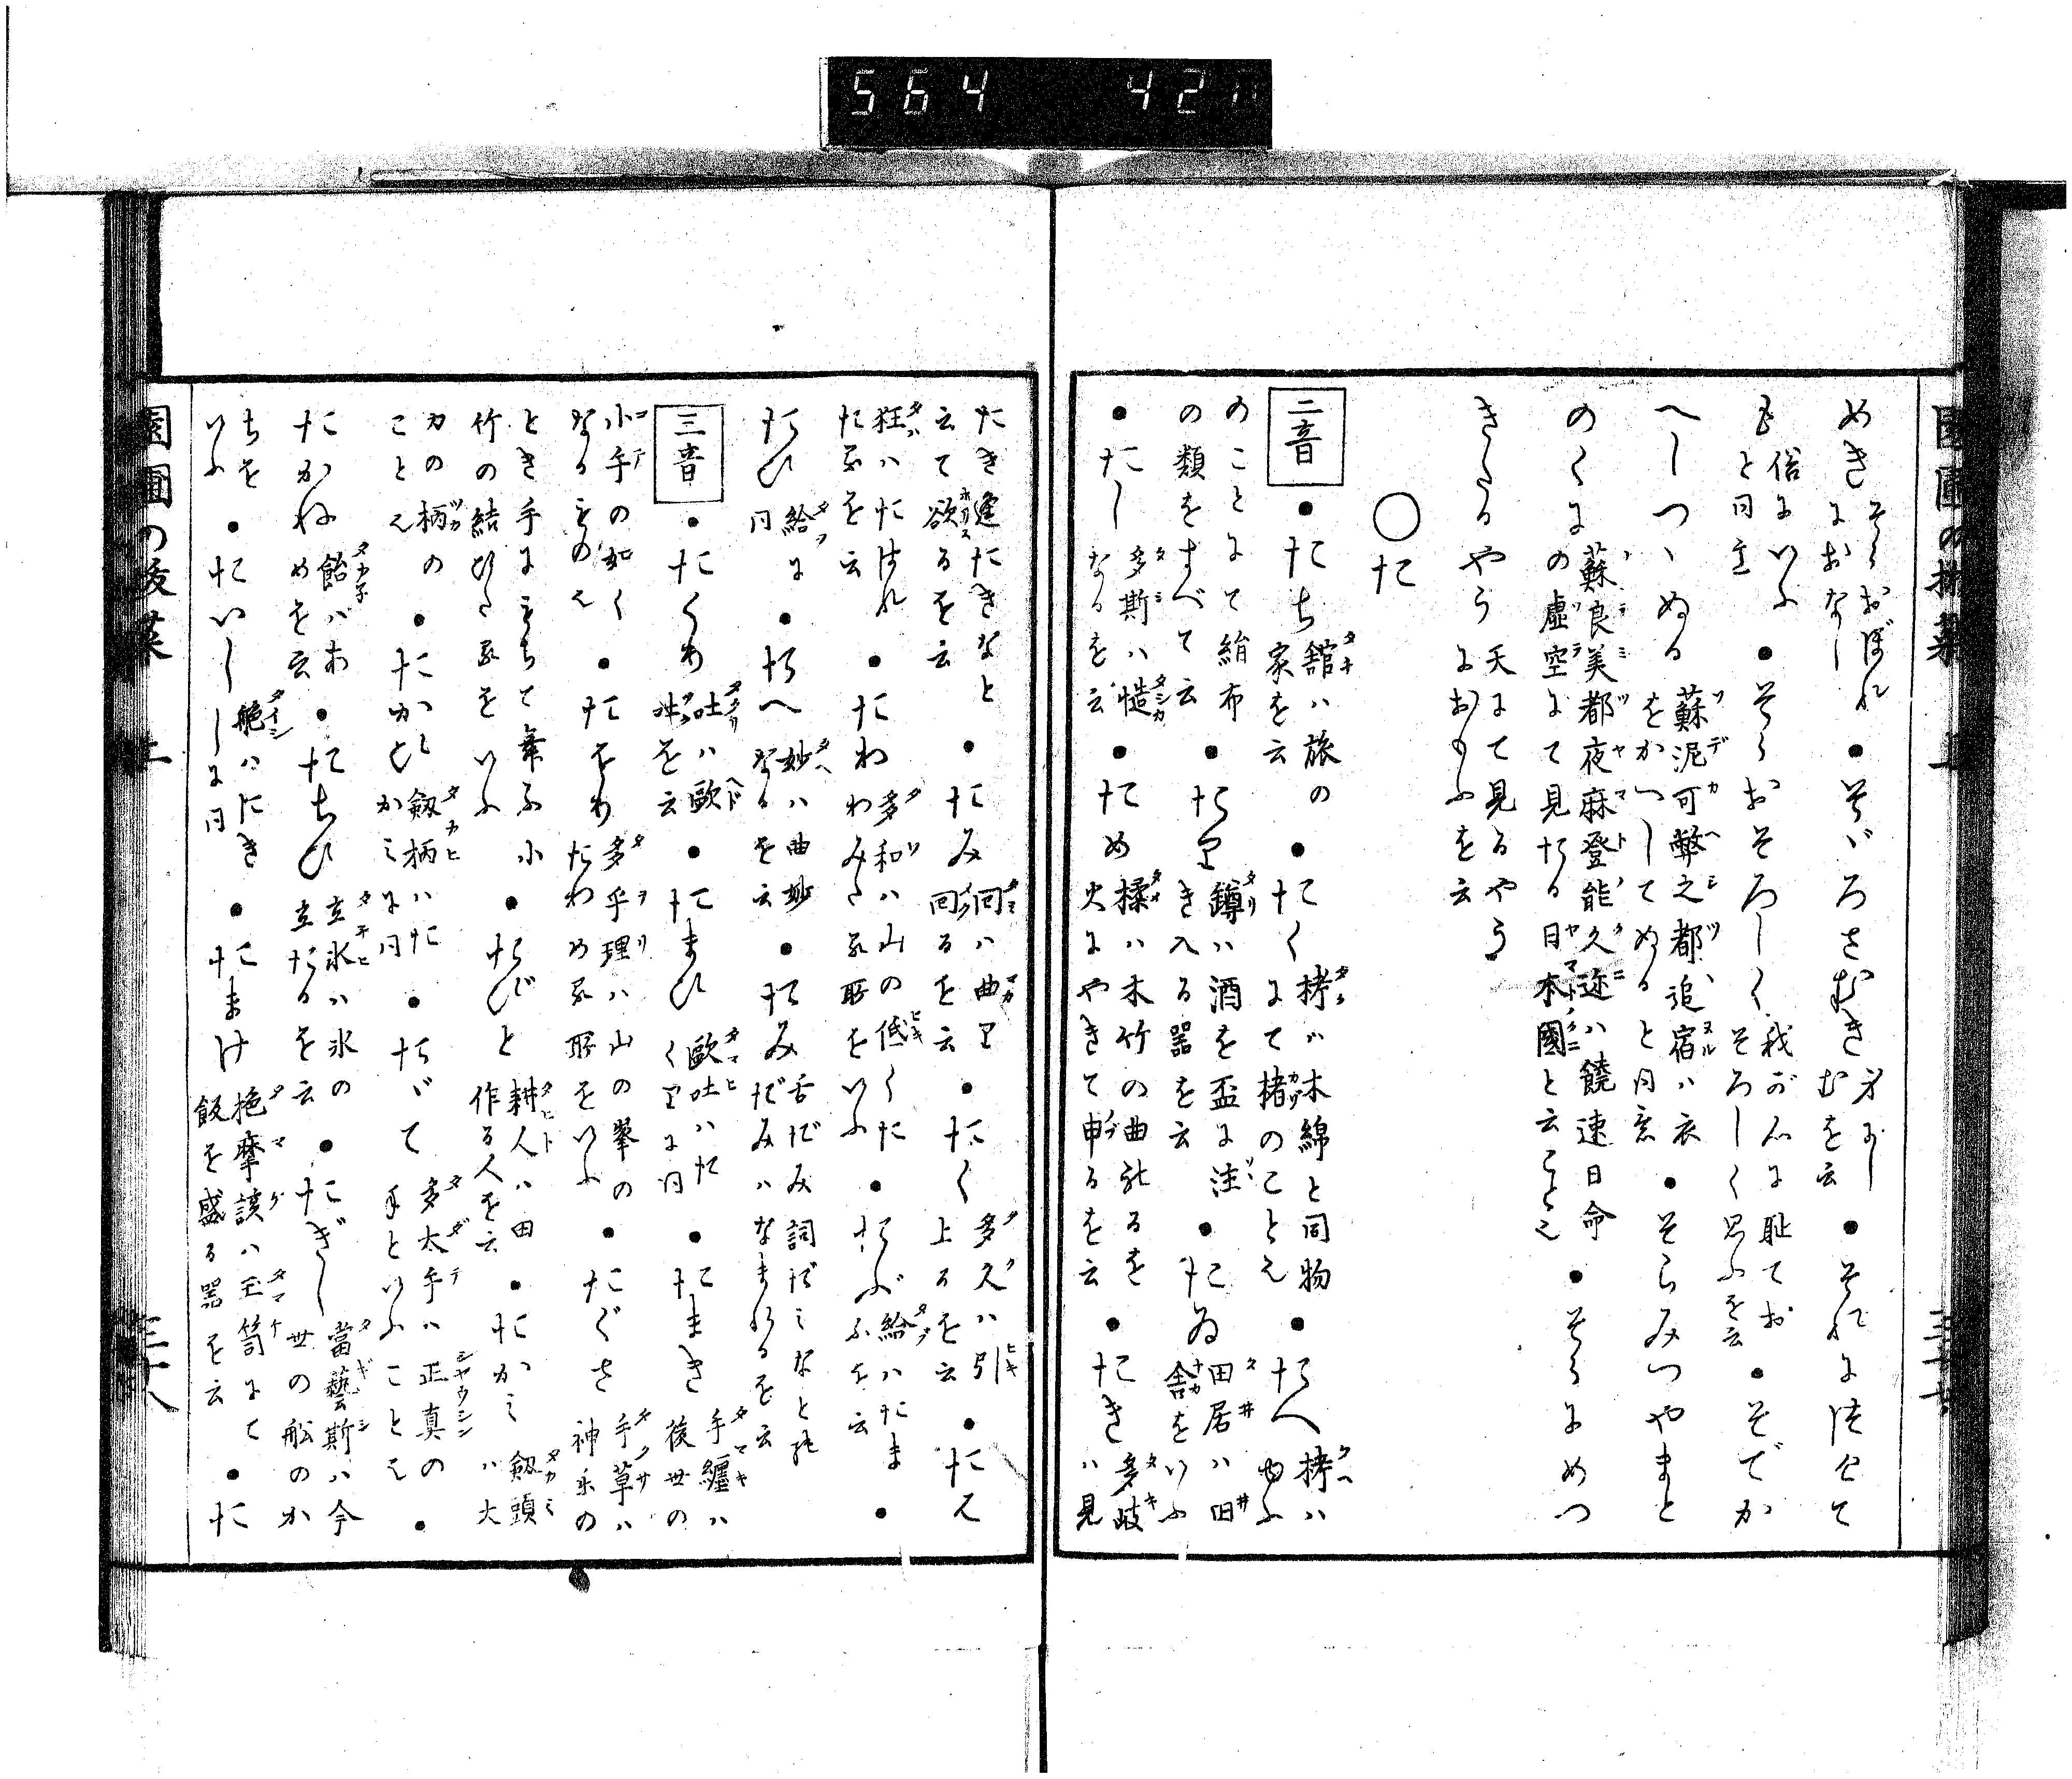 564 42
めき そらおぼれにおなし ●そゞろさむき 身おしむを云 ●それにはせて
も 俗にいふと同意 ●そらおそろしく 我が心に恥ておそろしく思ふを云 ●そでか
へしつゝぬる 蘇泥可弊之都追宿ハ衣をかへしてぬると同意 ●そらみつやまと
のくに 蘇良美都夜麻登能久迩ハ饒速日命の虚空にて見たる日本國と云こと也 ●そらにめつ
きたるやう 天にて見るやうにおもふを云
○た
二音 ●たち 舘ハ旅の家を云 ●たく 栲ハ木綿と同物にて楮のこと也 ●たへ 栲ハゆふ
のことにて絹布の類をすべて云 ●たり 鐏ハ酒を盃に注き入る器を云 ●たゐ 田居ハ田舎をいふ
●たし 多斯ハ慥なるを云 ●ため 揉ハ木竹の曲れるを火にやきて申るを云 ●たき 多岐ハ見
たき逢たきなと云て欲るを云 ●たみ 回ハ曲り回るを云 ●たく 多久ハ引上るを云 ●たえ
狂ハたはれたるを云 ●たわ 多和ハ山の低くたわみたる所をいふ ●たぶ 給ハたまふを云 ●
たひ 給に同 ●たへ 妙ハ曲妙なるを云 ●たみ 舌だみ詞だミなと云だみハなまれるを云
三音 ●たくり 吐ハ歐吐を云 ●たまひ 歐吐ハたくりに同 ●たまき 手纏ハ後世の
小手の如くなるもの也 ●たをり 多乎理ハ山の峯のたわめる所をいふ ●たぐさ 手草ハ神楽の
とき手にもちて舞ふ小竹の結ひたるをいふ ●たびと 耕人ハ田作る人を云 ●たかミ 釼頭ハ大
刀の柄のこと也 ●たかひ 釼柄ハたかミに同 ●たゞて 多太手ハ正真の手といふこと也 ●
たかね 飴ハあめを云 ●たちひ 立氷ハ氷の立たるを云 ●たぎし 當藝斯ハ今世の舩のか
ちを いふ ●たいし 艇ハたきしに同 ●たまけ 抱摩該ハ玉笥にて飯を盛る器を云 ●た
三十八